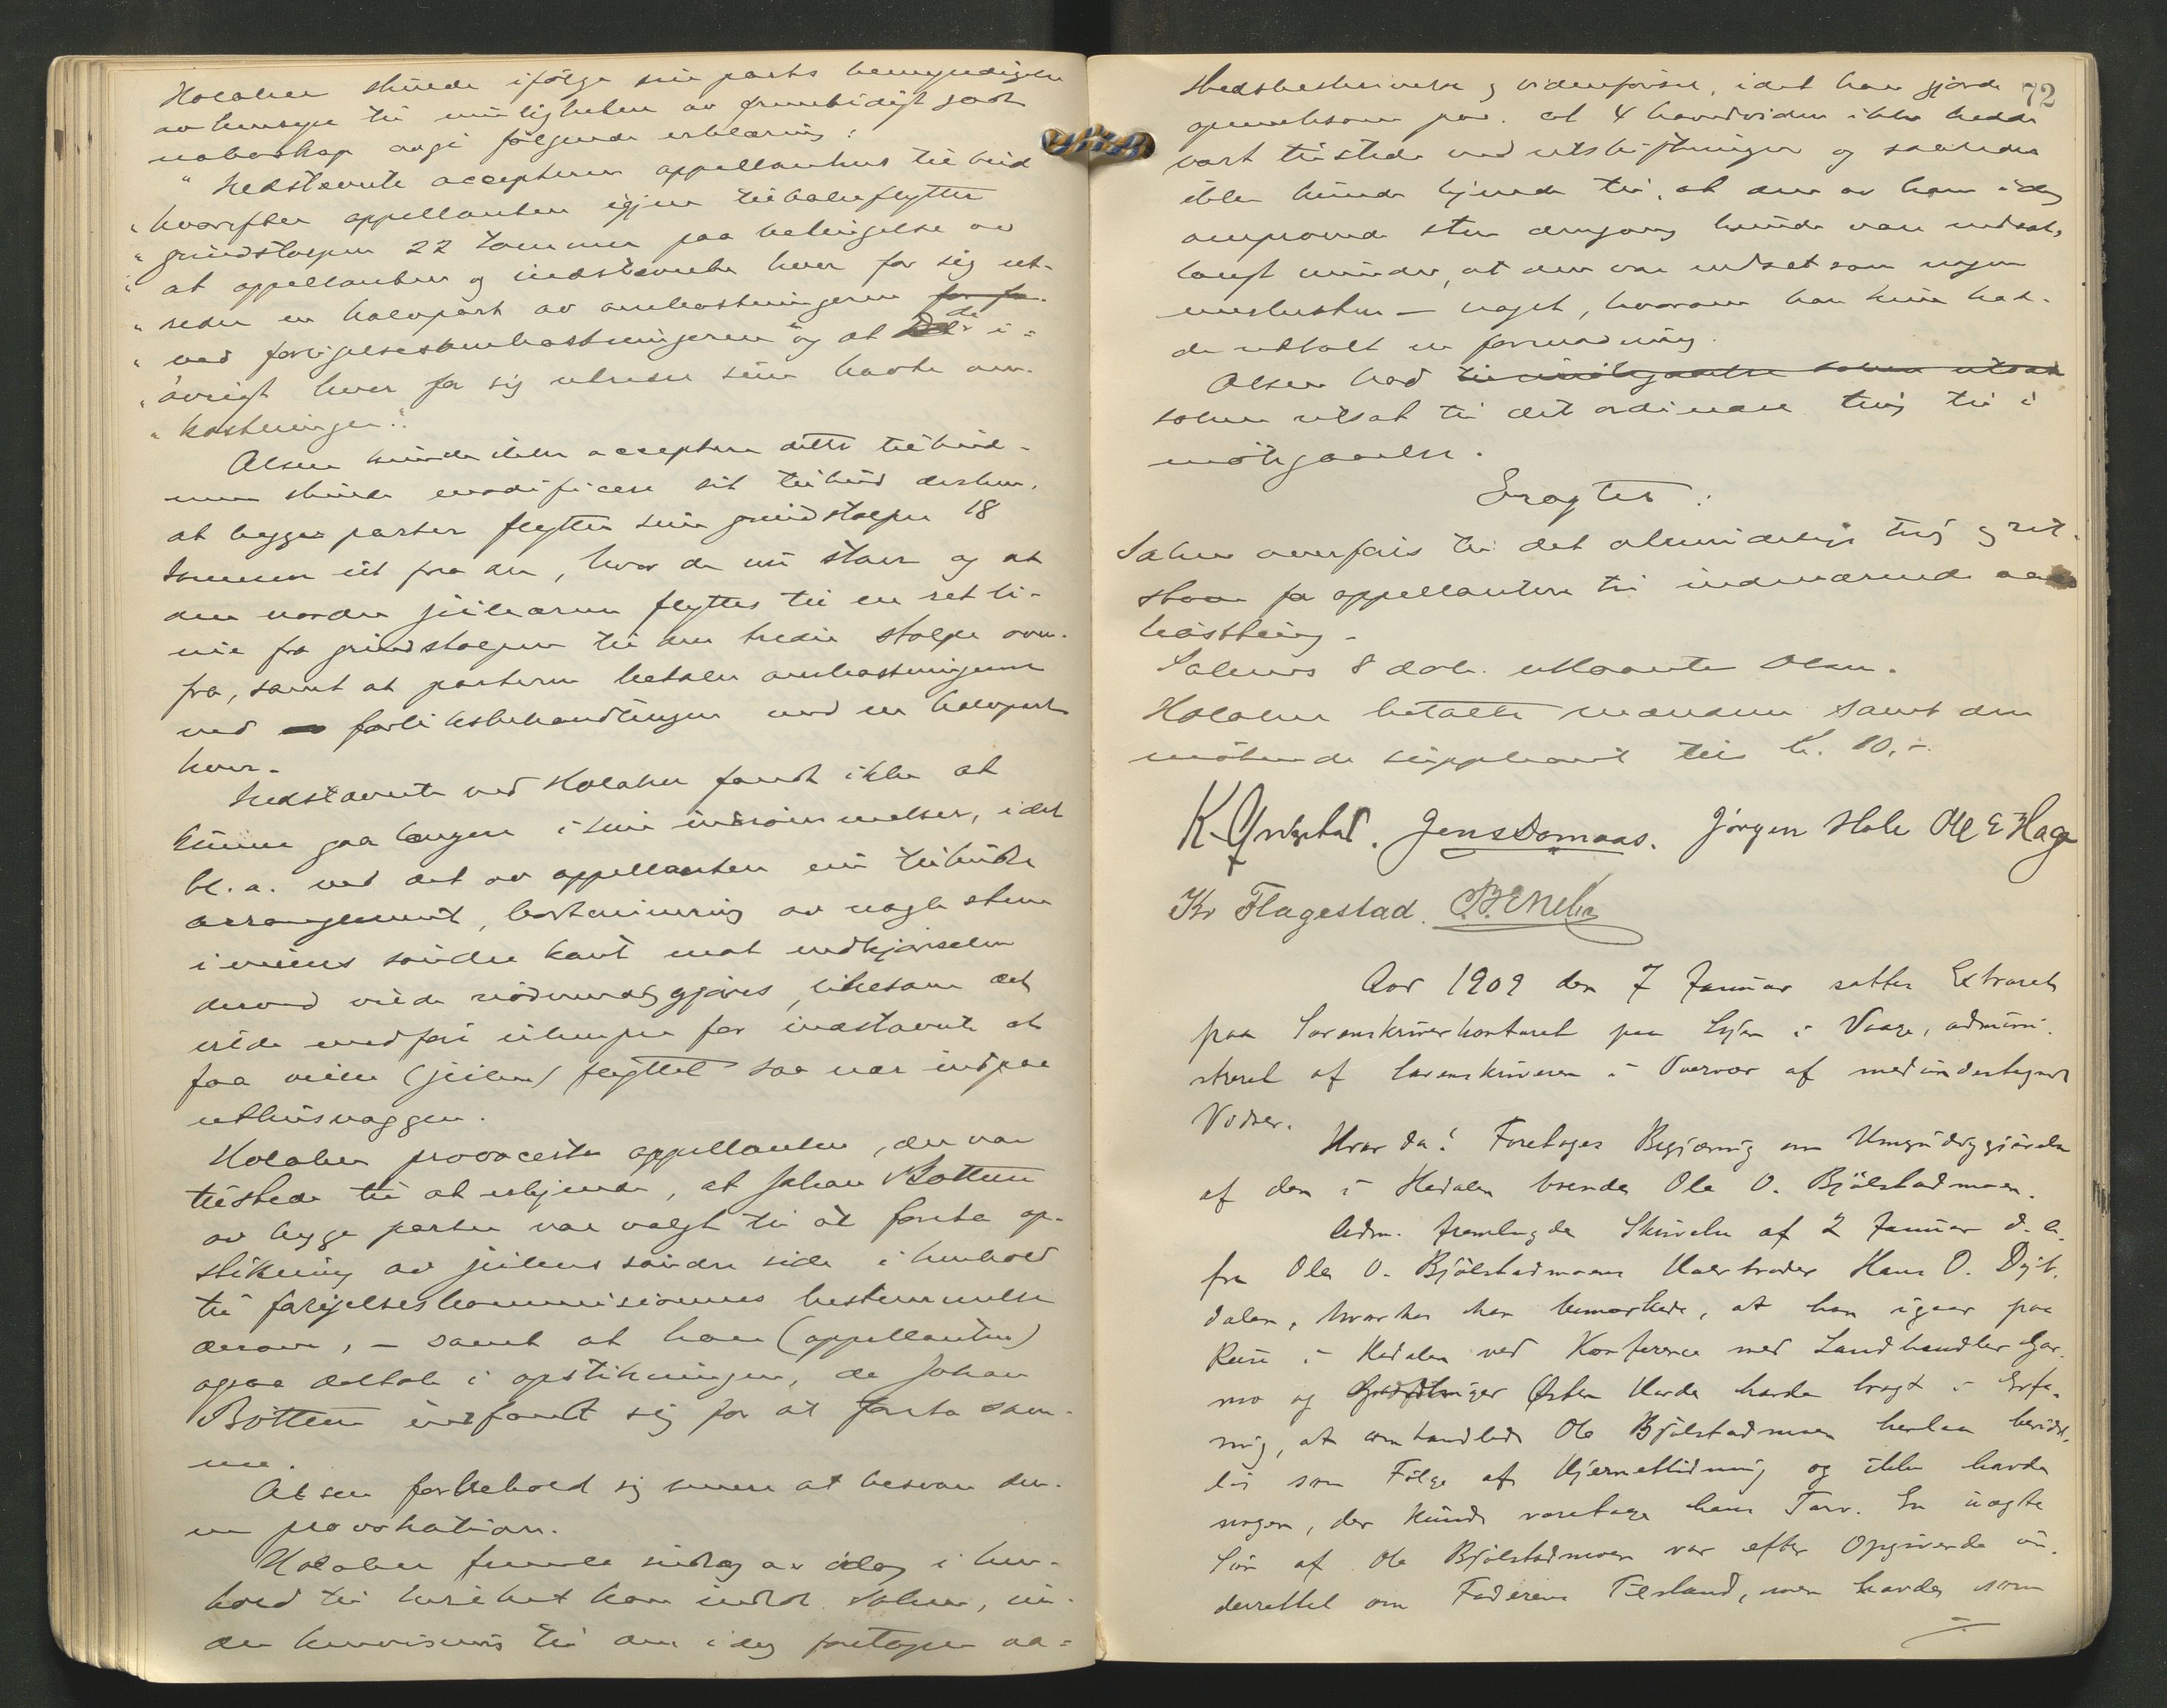 Holaker skulde ifølge sin parts bemyndigelse
av hensyn til muligheten av fremtidigt godt
naboskap avgi følgende erklæring:
"Indstevnte accepterer appellantens tilbud
"hvorefter appellanten igjen tilbakeflytter
"grindstolpen 22 tommer paa betingelse av
"at appellanten og indstevnte hver for sig ut-
"reder en halvpart av omkostningerne for fo-
"ved forligelsesomkostningerne og at de i-
"øvrigt hver for sig utreder sine havte om-
"kostninger".
Olsen kunde ikke acceptere dette tilbud -
men skulde modificere sit tilbud derhen,
at begge parter flytter sin grindstolpe 18
tommer ut fra den, hvor de nu staar og at
den nordre geilearm flyttes til en ret li-
nie fra grindstolpen til den tredie stolpe oven-
fra, samt at parterne betaler omkostningerne
ved forliksbehandlingen med en halvpart
hver.
Indstevnte ved Holaker fandt ikke at
kunne gaa længere i sine indrømmelser, idet
bl. a. ved det av appellanten nu tilbudte
arrangement, bortminering av nogle stene
i veiens søndre kant mot indkjørselen
derved vilde nødvendiggjøres, likesom det
vilde medføre ulemper for indstevnte at
faa veien (geilen) flyttet saa nær indpaa
uthusvæggen.
Holaker provocerte appellanten, der var
tilstede til at erkjende, at Johan Bottem
av begge parter var valgt til at foreta op-
stikning av geilens søndre side i henhold
til forligelseskommissionens bestemmelse
derom, - samt at han (appellanten)
ogsaa deltok i opstikningen, da Johan
Bottem indfandt sig for at foreta sam-
me.
Olsen forbeholdt sig senere at besvare den-
ne provokation.
Holaker fremla indlæg av idag i hen-
hold til hvilket han indlot saken, un-
der henvisning til den idag foretagne aa-
72
stedsbeskrivelse og vidneførsel, idet han gjorde
opmerksom paa. at 4 hovedvidner ikke hadde
vært tilstede ved utskiftningen og saaledes
ikke kunde kjende til, at den av ham idag
omprovede sten dengang kunde være nedsat,
langt mindre, at den var nedsat som nogen
merkesten - noget, hvorom han kun had-
de uttalt en formodning.
Olsen bad til imøtegaaelse saken utsat
saken utsat til det ordinære ting til i
møtegaaelse.
Eragtet:
Saken overføres til det almindelige ting og ret-
stvæn for appellanten til indeværende aars
høstting -
Sakens 8 dok. utlaante Olsen.
Holaker betalte mændene samt den
møtende suppleant til Kr. 10,-
K. Angelstad. Jens Domaas. Jørgen Hole Ole E Hage
Kr Flagestad.
Aar 1909 den 7 Januar sattes Extraret
paa Sorenskriverkontoret paa Lyen i Vaage, admini-
streret af Sorenskriveren i Overvær af medundertegnede
Vidner.
Hvor da: Foretoges Begjæring om Umyndiggjørelse
af den i Hedalen boende Ole O. Bjølstadmoen.
Adm. fremlagde Skrivelse af 2 Januar d. A.
fra Ole O. Bjølstadmoens Halvbroder Hans O. Dyb-
dalen, hvorhos han bemærkede, at han igaar paa
Reise i Hedalen ved Konference med Landhandler Gar-
mo og Østen Harde havde bragt i Erfa-
ring, at omhandlede Ole Bjølstadmoen henlaa bevidst-
løs som Følge af Hjernelidning og ikke havde
nogen, der kunde varetage hans Tarv. En uægte
Søn af Ole Bjølstadmoen var efter Opgivende un-
derrettet om Faderens Tilstand, men havde som